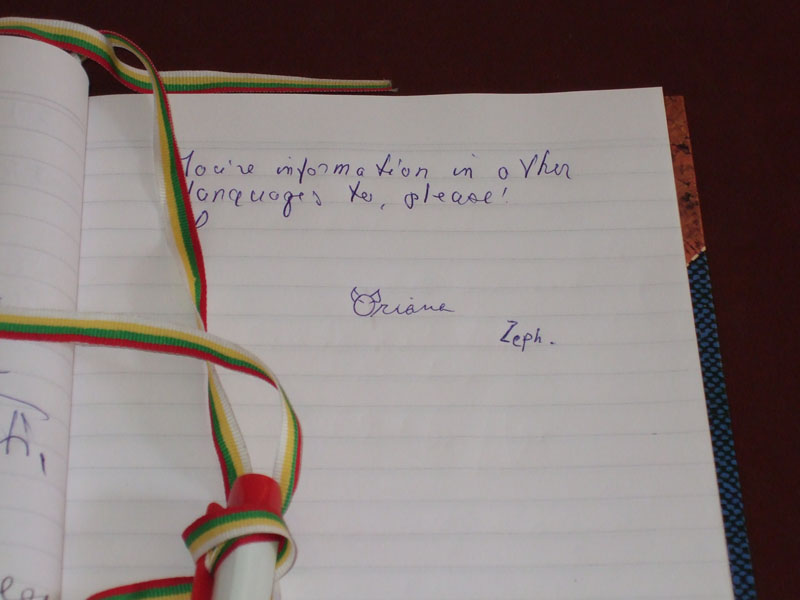 You're information in other
languages to, please!
Oriana
Zeph.